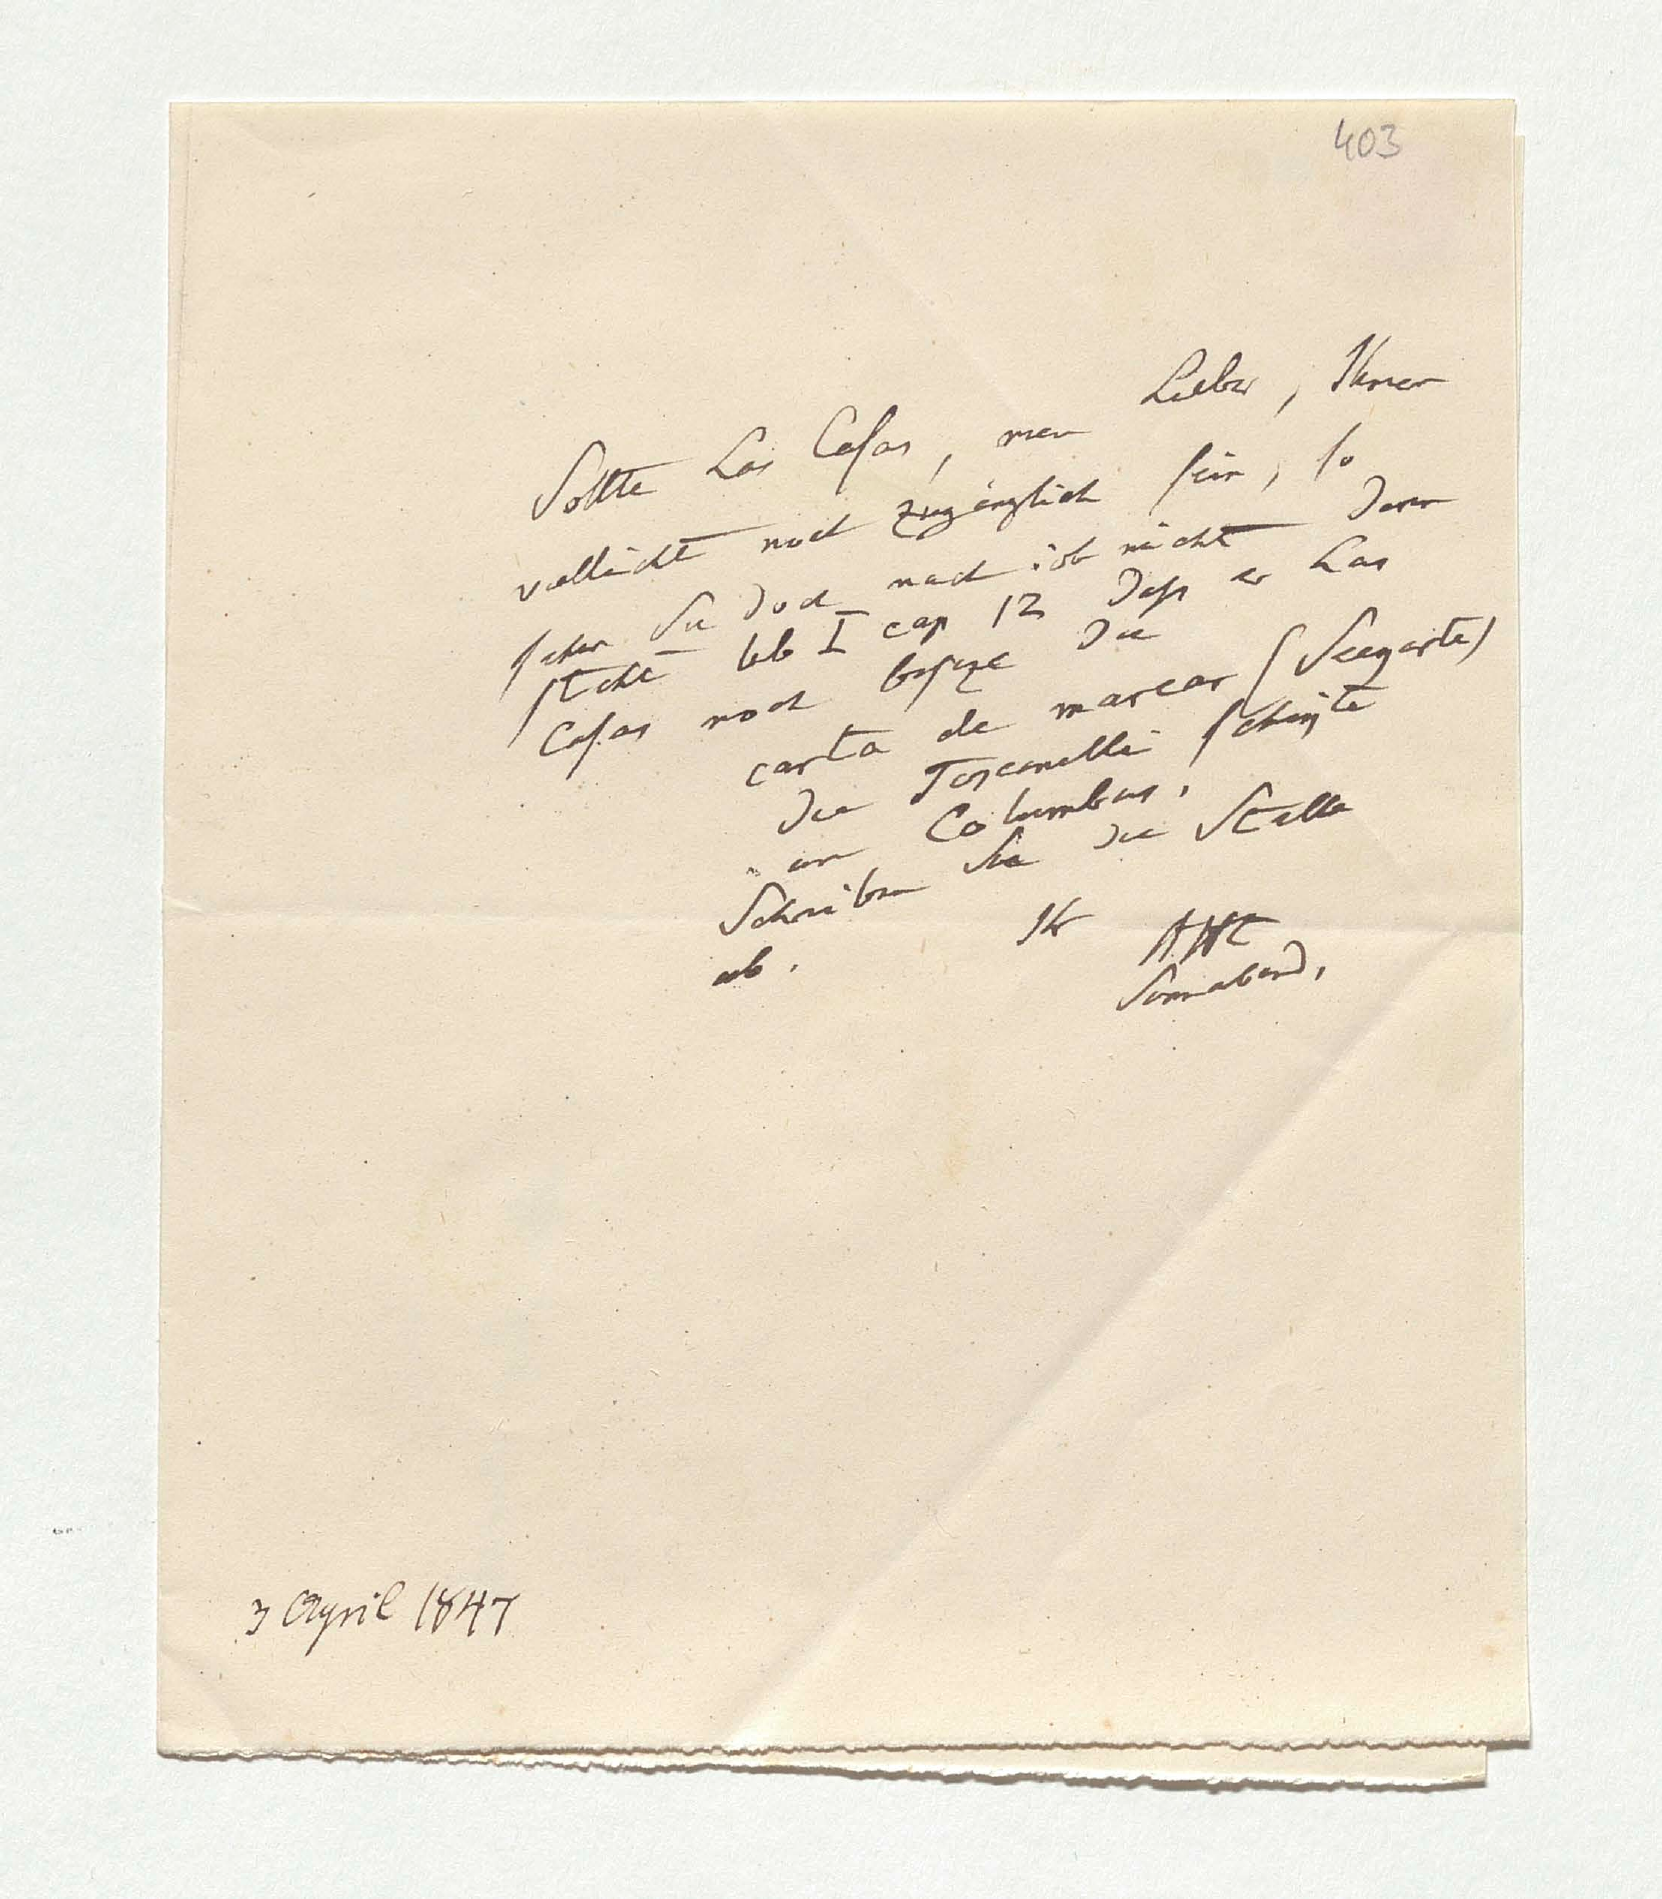 403
Sollte Las Casas, mein Lieber, Ihnen
vielleicht noch zugänglich sein, so
sehen Sie doch nach ob nicht darin
steht lib I cap 12 daß er Las
Casas noch besize die
carta de marear (Seecarte)
die Toscanelli schickte
an Columbus.
Schreiben Sie die Stelle
ab.
Ihr AHt
Sonnabend.
3 April 1847